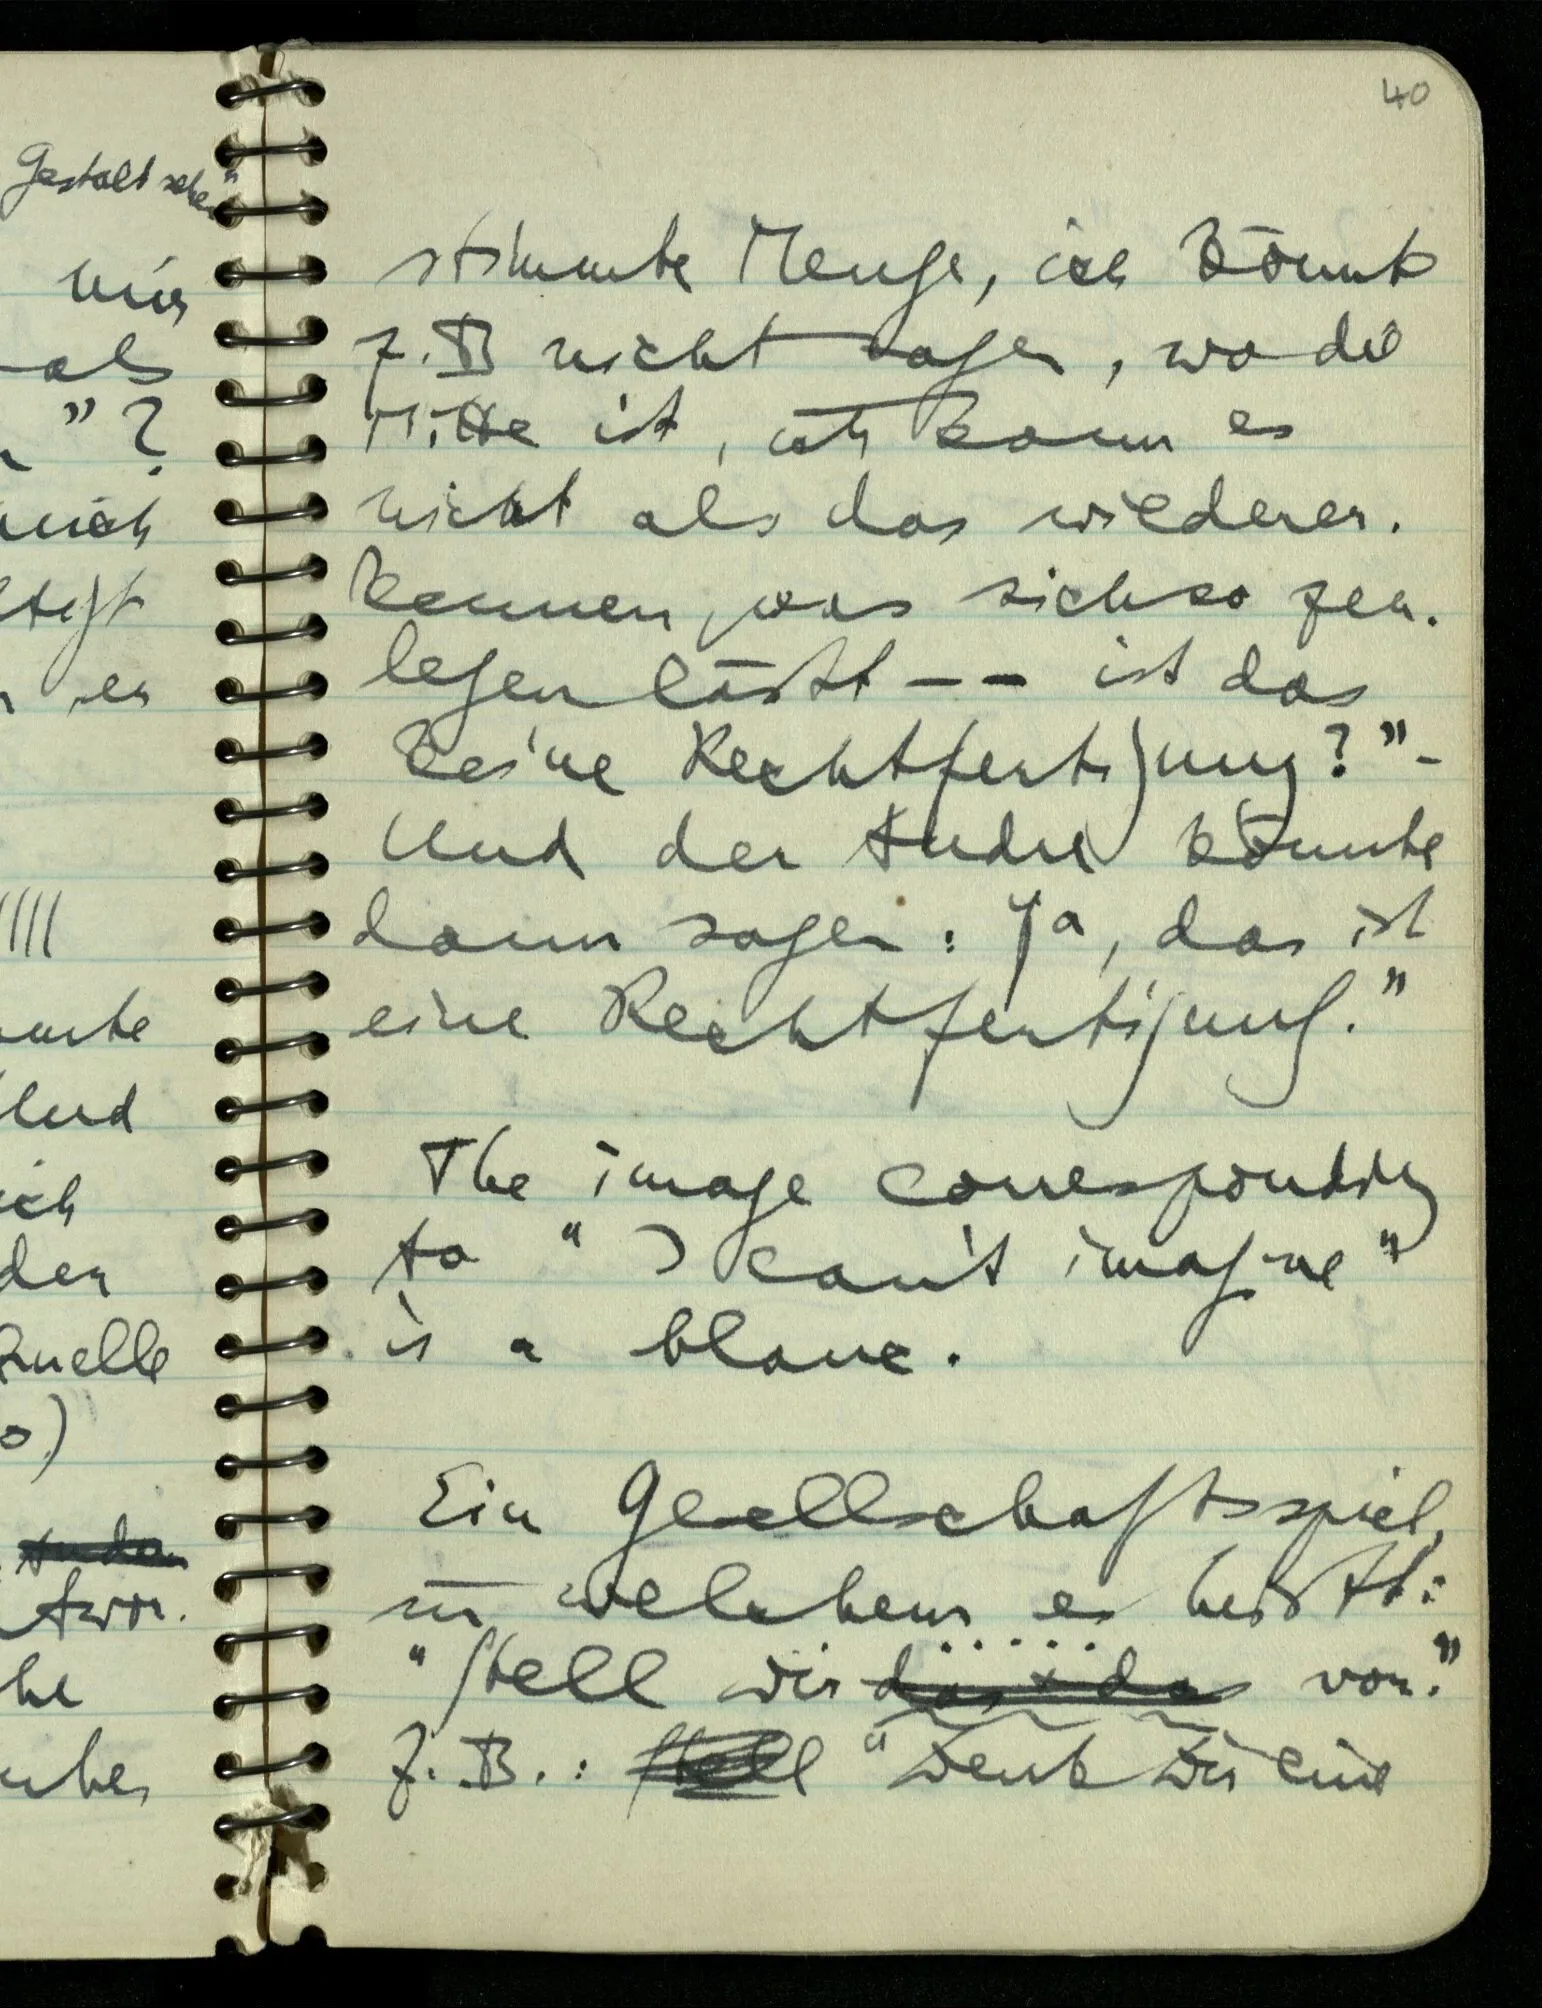 40
Gestalt sehen"
mir
als
" ?
mich
er
||||
und
ich
der
Quelle
)
andern
Antwor-
stimmte Menge, ich könnte
z.B nicht sagen, wo die
Mitte ist, ich kann es
nicht als das wiederer-
kennen, was sich so zer-
legen läßt -- ist das
keine Rechtfertigung?" -
Und der Andre könnte
dann sagen: Ja, das ist
eine Rechtfertigung."
The image corresponding
to "I can't imagine"
is a blanc.
Ein Gesellschaftsspiel,
in welchem es heißt:
"Stell Dir das & das vor."
z.B.: Stell "Denk Dir eine